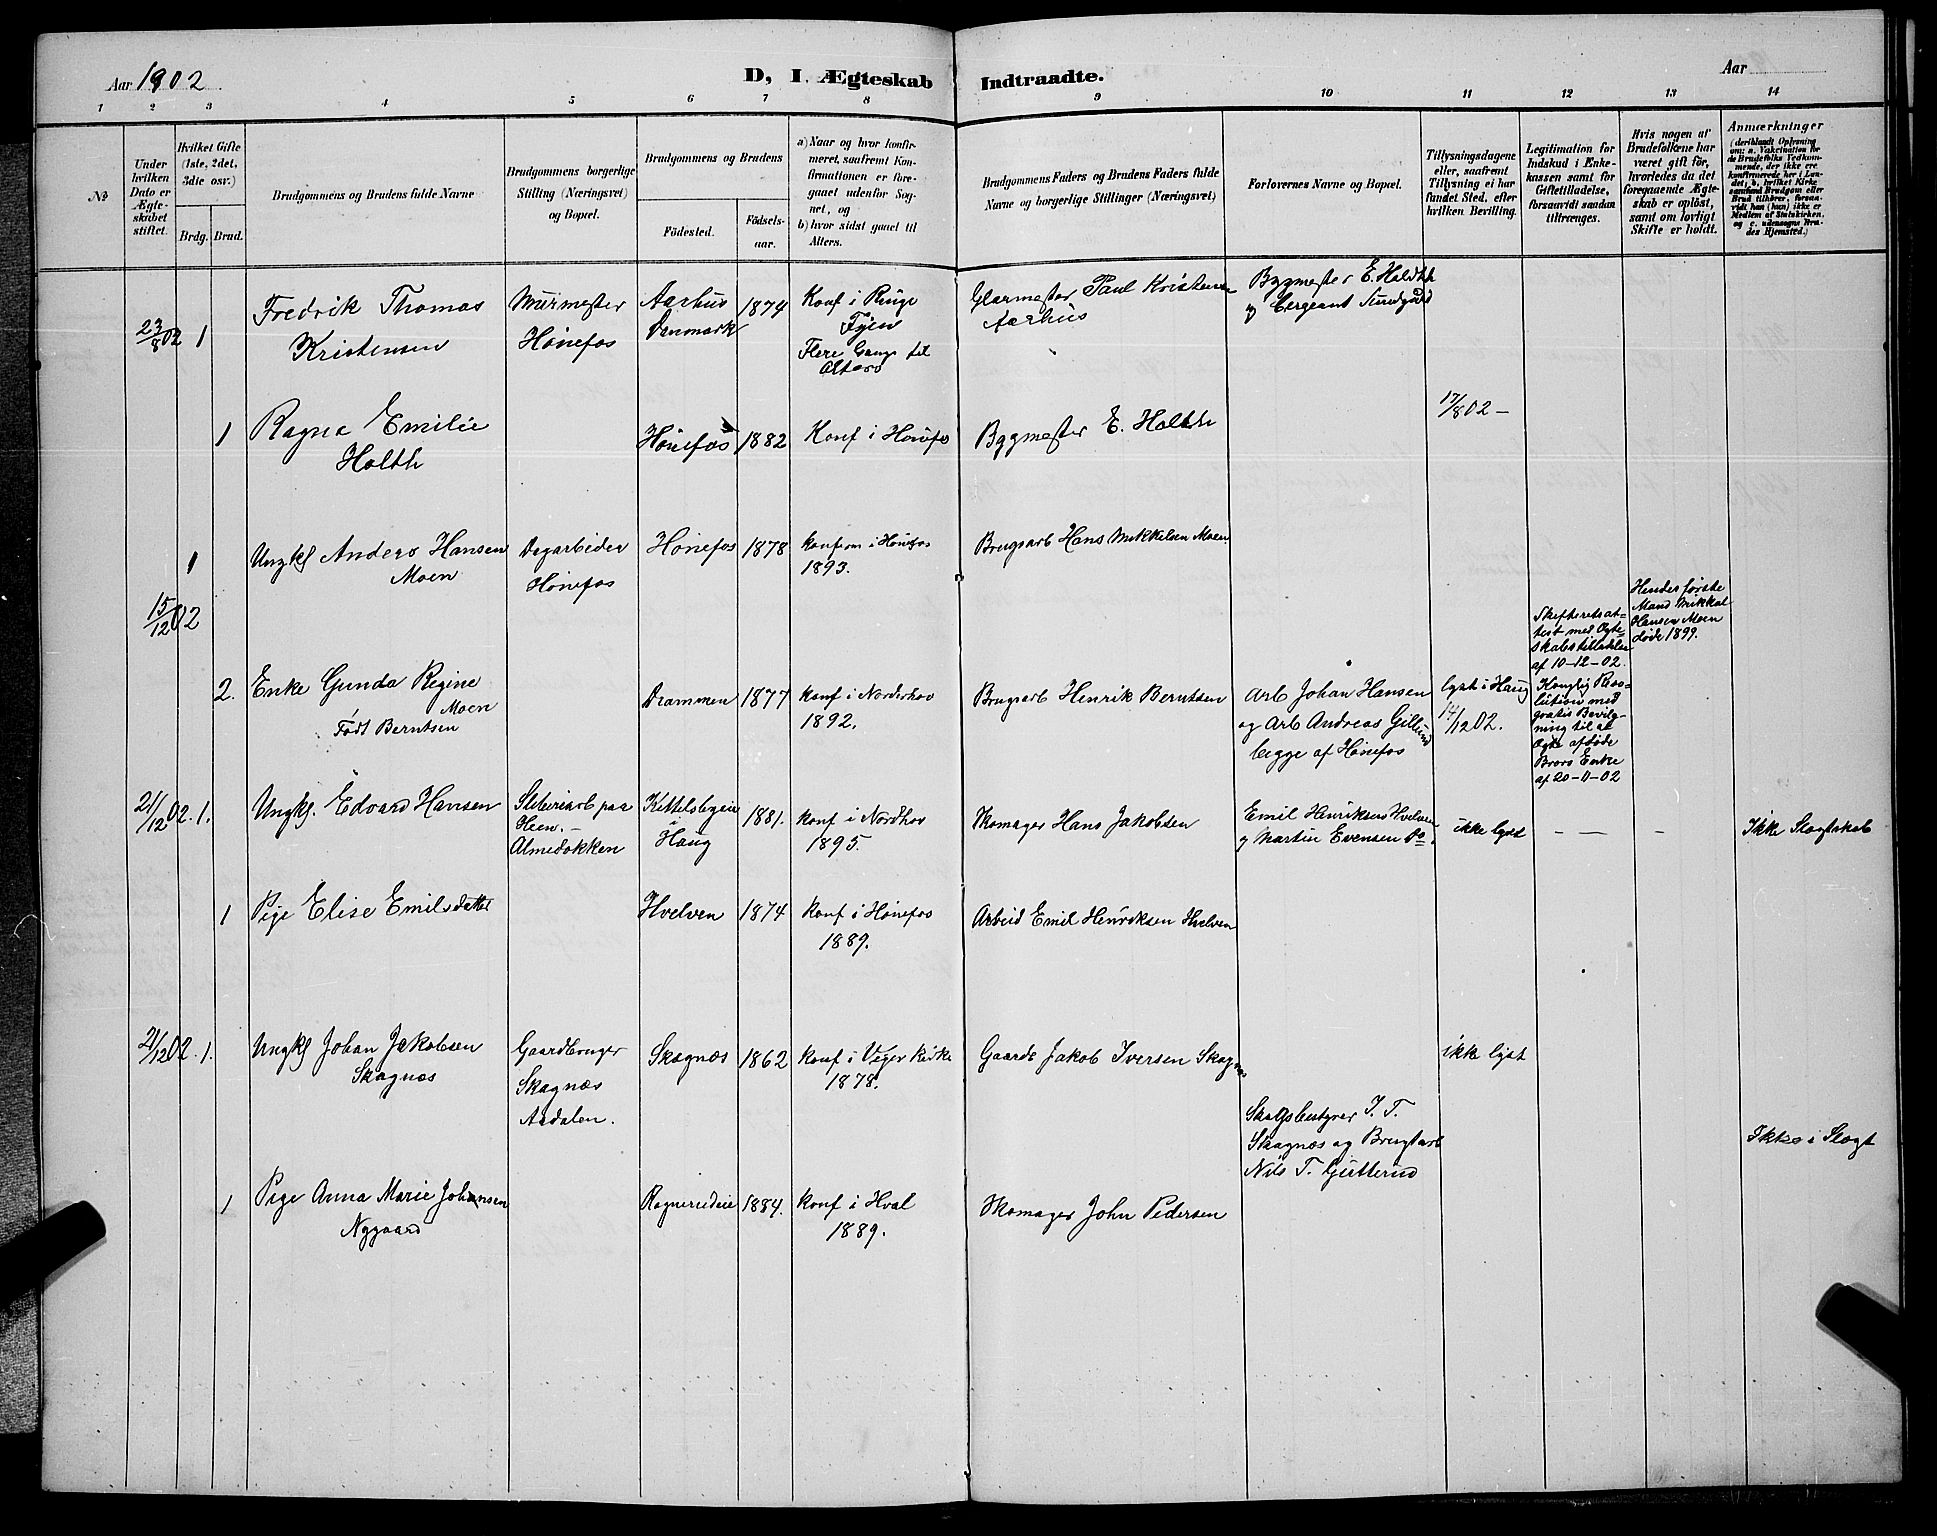 Aar 1902
D, I. Ægteskab Indtraadte.
Aar
1 2 3 4 5 6 7 8 9 10 11 12 13 14
No
Under hvilken Dato er Ægteskabet stiftet.
Hvilket Gifte (1ste, 2det, 3die osv.)
Brdg. Brud.
Brudgommens og Brudens fulde Navne
Brudgommens borgerlige Stilling (Næringsvei) og Bopæl.
Brudgommens og Brudens
Fødested.
Fødselsaar.
a) Naar og hvor konfirmeret, saafremt Konfirmationen er foregaaet udenfor Sognet, og
b) hvor sidst gaaet til Alters.
Brudgommens Faders og Brudens Faders fulde Navne og borgerlige Stillinger (Næringsvei)
Forlovernes Navne og Bopæl.
Tillysningsdagene eller, saafremt Tillysning ei har fundet Sted, efter hvilken Bevilling.
Legitimation for Indskud i Enkekassen samt for Giftetilladelse, forsaavidt saadan tiltrænges.
Hvis nogen af Brudefolkene har været gift før, hvorledes da det foregaaende Ægteskab er opløst, samt om lovligt Skifte er holdt.
Anmærkninger (deriblandt Oplysning om: a. Vakcination for de Brudefolks Vedkommende, der ikke ere konfirmerede her i Landet, b. hvilket Kirkesamfund Brudgom eller Brud tilhører, forsaavidt han (hun) ikke er Medlem af Statskirken, og c. udensogns Brudes Hjemsted.)
23/8 02
1
Fredrik Thomas
Kristensen
Murmester
Hønefos
Aarhus
Danmark
1874
Konf i Ringe
Fyen
Flere Gange til
Alters
Glarmester Paul Kristensen
Aarhus
Bygmester E. Holdth
og Sergeant Sundgård
1
Ragna Emilie
Holth
Hønefos
1882
Konf i Hønefos
Bygmester E. Holdth
17/8 02 -
15/12 02
1
Ungkl Anders Hansen
Moen
Dagarbeider
Hønefos
Hønefos
1878
konfirm i Hønefos
1893.
Brugsarb Hans Mikkelsen Moen.
2.
Enke Gunda Regine
Moen
Født Berntsen
Drammen
1877
konf i Norderhov
1892.
Brugsarb Henrik Berntsen
Arb Johan Hansen
og Arb Andreas Gillund
begge af Hønefos
lyst i Haug
14/12 02.
Skifteretsattest
med Ægteskabstilladelse
af 10-12-02.
Konglig Resolution
med
gratis Bevilgning
til at
ægte afdøde
Brors Enke
af 20-11-02
Hendes første
Mand Mikkal
Hansen Moen
døde 1899.
21/12 02.
1.
Ungkl. Edvard Hansen
Sliberiarb paa
Heen. -
Almedokken
Kittelsbyeie
i Haug
1881.
konf i Nordhov
1895.
Skomager Hans Jakobsen
Emil Henriksens Hvelven
og Martin Evensen Do.
ikke lyst
— — —
Ikke Slægtskab
1
Pige Elise Emilsdatter
Hvelven
1874
konf i Hønefos
1889.
Arbeid Emil Henriksen Hvelven
21/12 02.
1.
Ungkl Johan Jakobsen
Skagnæs
Gaardbruger
Skagnæs
Aadalen.
Skagnæs
1862
konf i Viger Kirke
1878.
Gaardb Jakob Iversen Skagnæs
ikke lyst
Skogsbestyrer J. T.
Skagnæs og Brugsarb
Nils T. Gutterud
Ikke i Slægt
1
Pige Anna Marie Johansen
Nygaard
Ragnerudeie
1884.
konf i Hval
1889.
Skomager John Pedersen